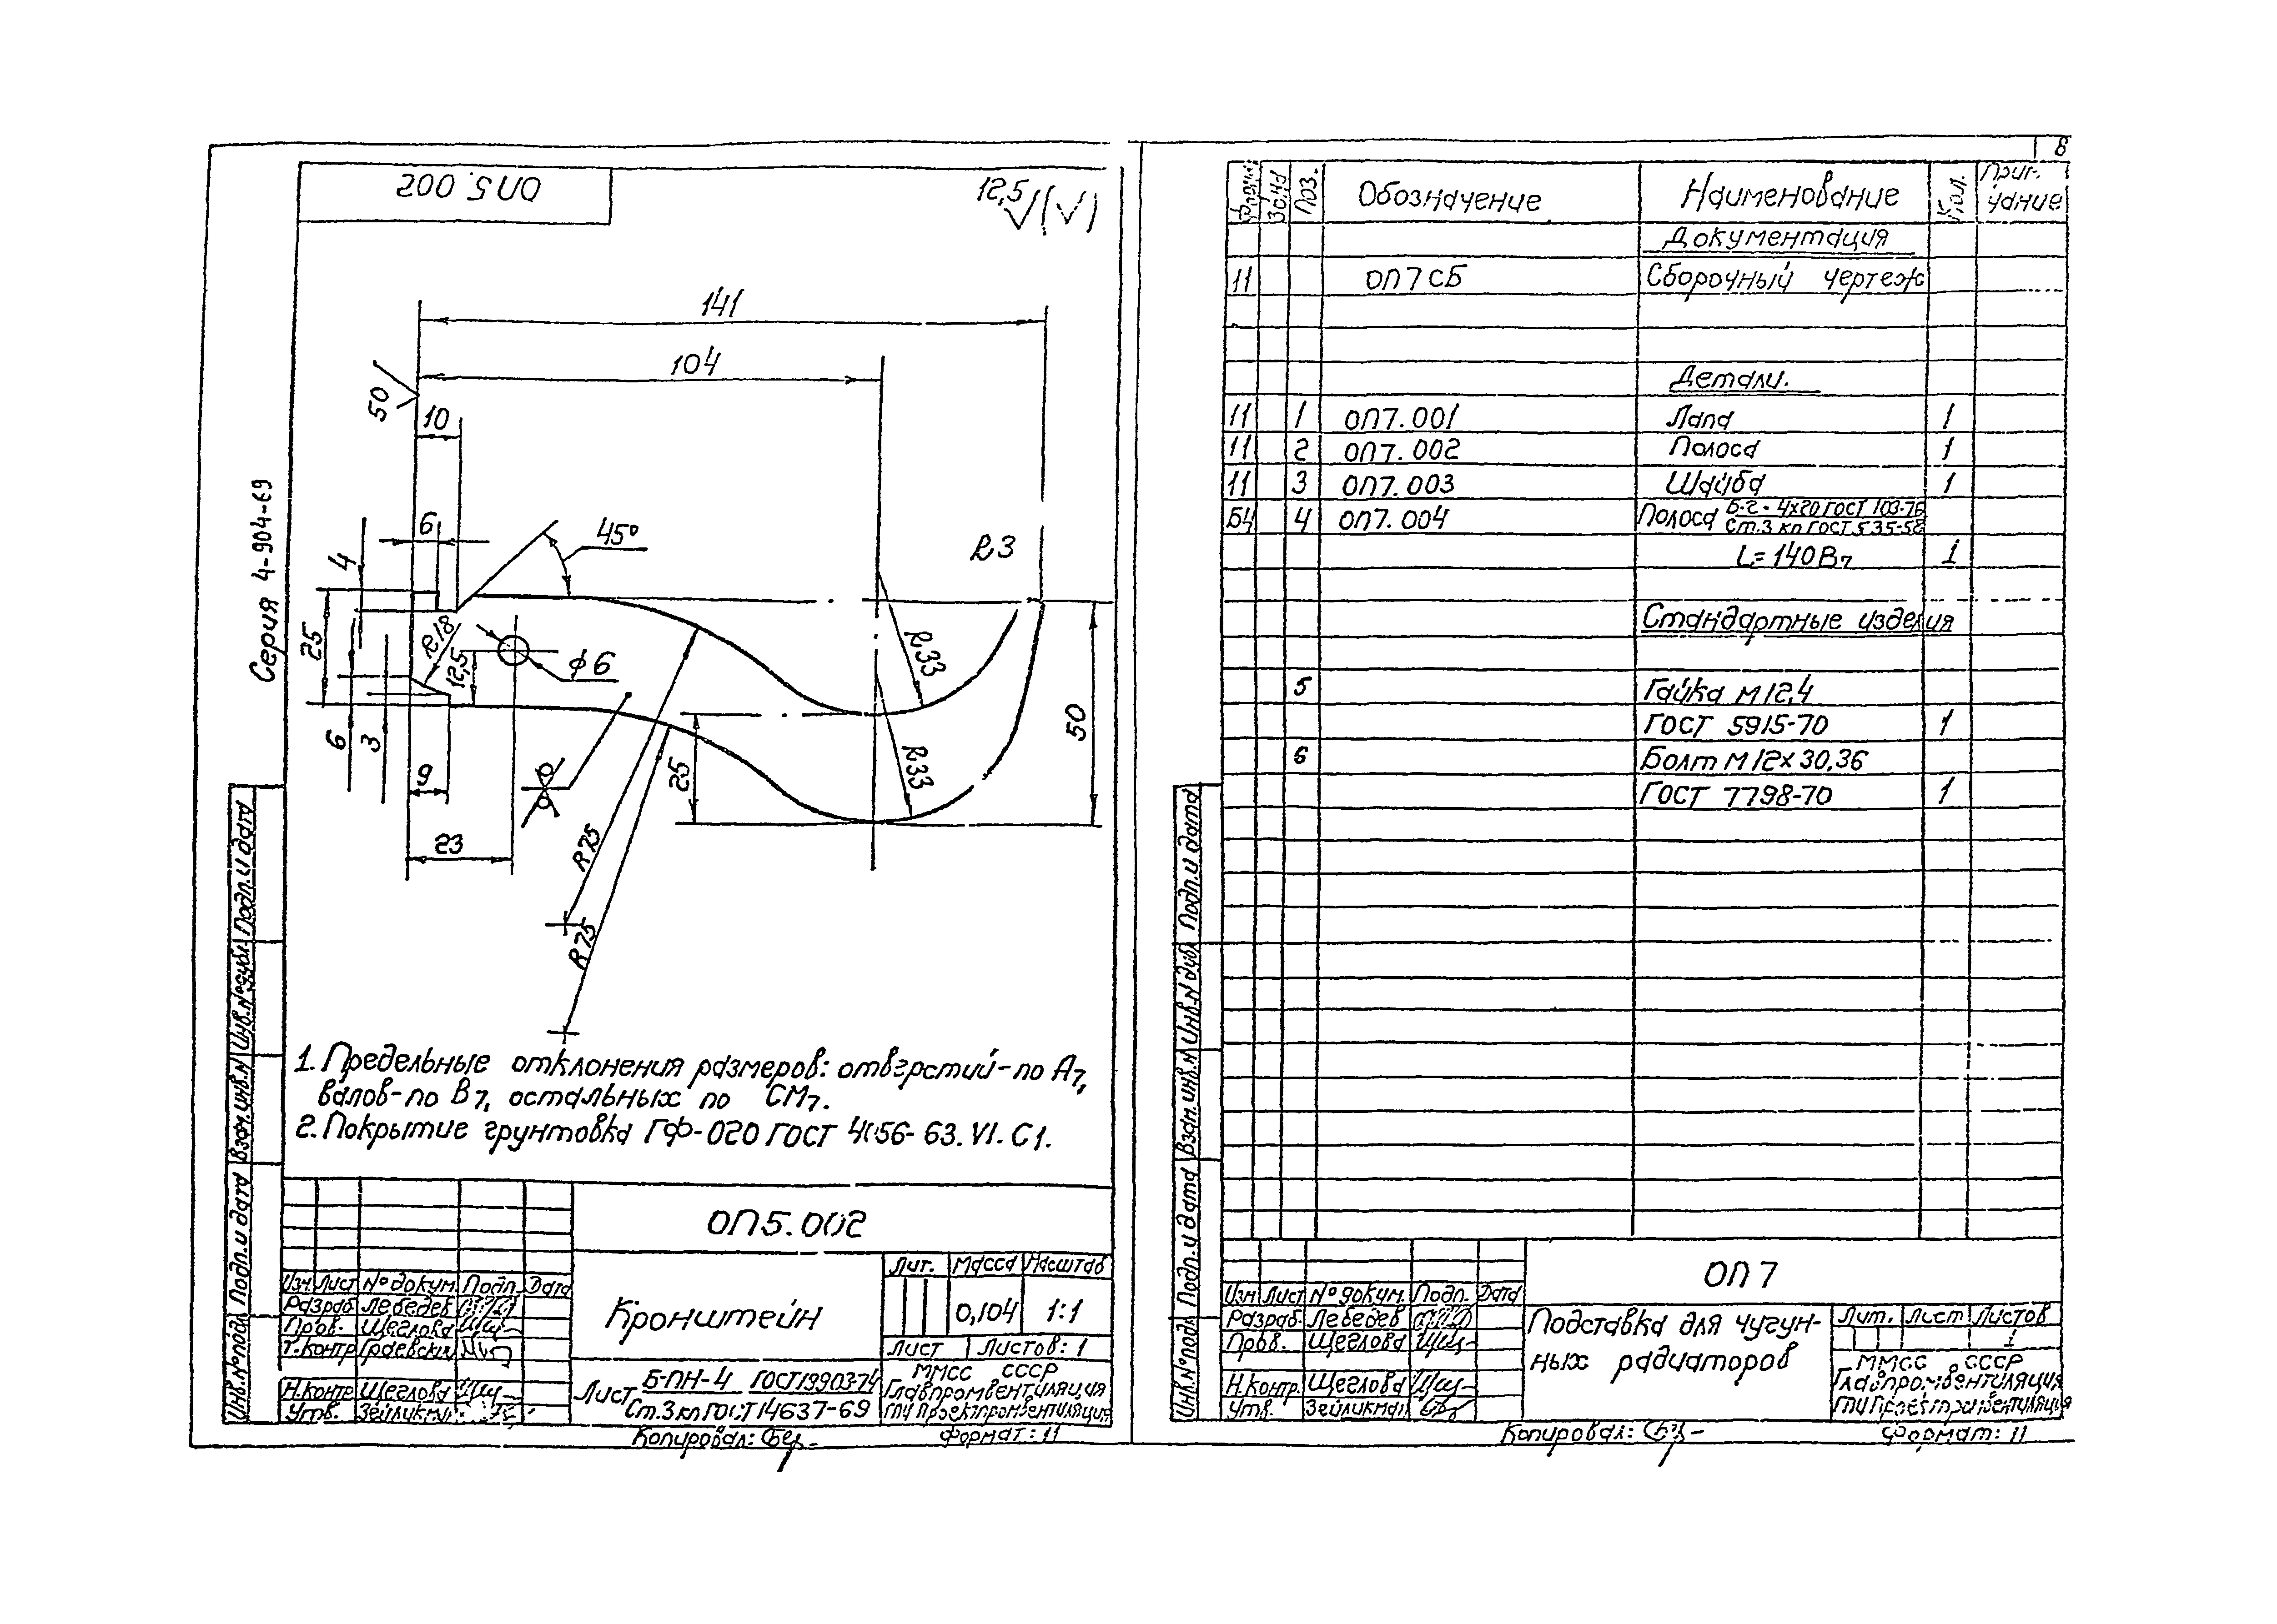 ОП5.002
12,5 √(√)
Серия 4-904-69
141
104
50
10
6
45°
4
R3
25
R18
12,5
ф6
R33
R33
50
6
3
9
25
23
R75
R75
1. Предельные отклонения размеров: отверстий-по А7,
валов-по В7, остальных по СМ7.
2. Покрытие грунтовка ГФ-020 ГОСТ 4056-63. VI. С1.
Инв.№подл. Подп.и дата Взам.инв.№ Инв.№дубл. Подп.и дата
ОП5.002
Изм. Лист №докум. Подп. Дата
Разраб. Лебедев
Пров. Щеглова
Т.контр. Граевский
Н.контр. Щеглова
Утв. Зейликман
Кронштейн
Лит. Масса Масштаб
0,104 1:1
Лист Листов: 1
Лист Б-ПН-4 ГОСТ19903-74
Ст.3кп ГОСТ14637-69
ММСС СССР
Главпромвентиляция
ГПИ Проектпромвентиляция
Копировал:
Формат: 11
8
Формат Зона Поз. Обозначение Наименование Кол. Примечание
Документация
11 ОП7СБ Сборочный чертеж
Детали.
11 1 ОП7.001 Лапа 1
11 2 ОП7.002 Полоса 1
11 3 ОП7.003 Шайба 1
БЧ 4 ОП7.004 Полоса Б-2-4х20 ГОСТ 103-76
Ст.3 кп ГОСТ 535-58
L=140В7 1
Стандартные изделия
5 Гайка М12,4
ГОСТ 5915-70 1
6 Болт М12х30,36
ГОСТ 7798-70 1
Инв.№подл. Подп.и дата Взам.инв.№ Инв.№дубл. Подп.и дата
ОП7
Изм Лист №докум. Подп. Дата
Разраб. Лебедев
Пров. Щеглова
Н.контр. Щеглова
Утв. Зейликман
Подставка для чугун-
ных радиаторов
Лит. Лист Листов
1
ММСС СССР
Главпромвентиляция
ГПИ Проектпромвентиляция
Копировал:
Формат: 11